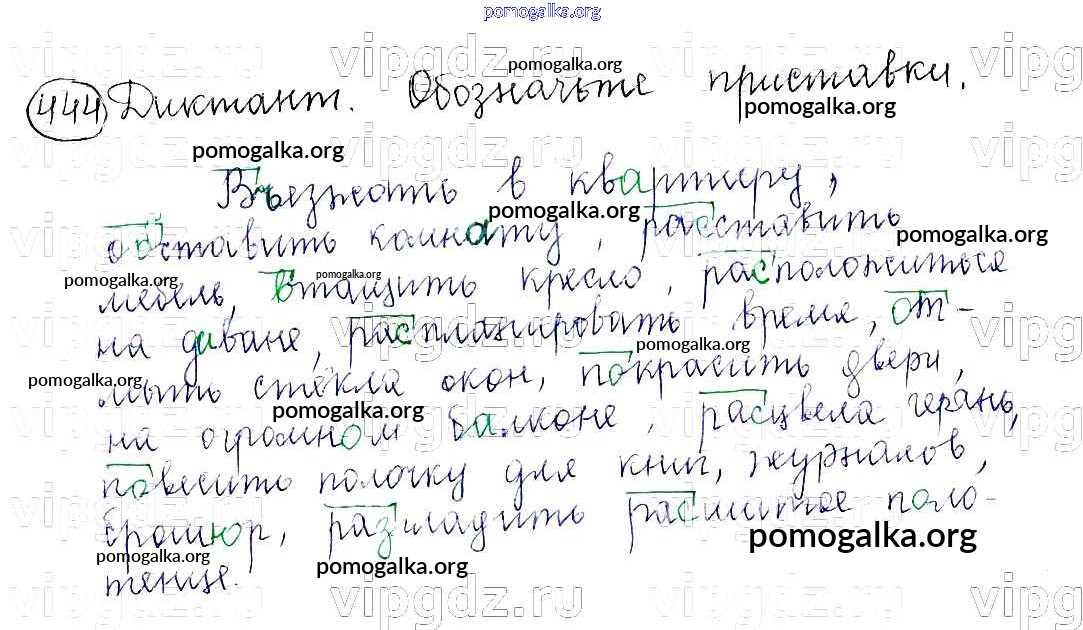 pomogalka.org
444 Диктант. Обозначьте приставки.
Въезжать в квартиру,
обставить комнату, расставить
мебель, втащить кресло, расположиться
на диване, распланировать время, от-
мыть стёкла окон, покрасить двери,
на огромном балконе, расцвела герань,
повесить полочку для книг, журналов,
брошюр, разгладить расшитое поло-
тенце.